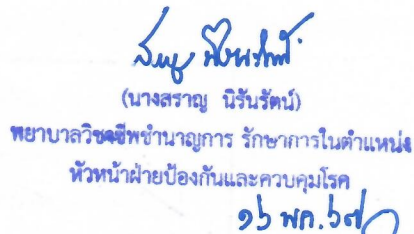 (นางสราญ นิรันรัตน์)
พยาบาลวิชาชีพชำนาญการ รักษาการในตำแหน่ง
หัวหน้าฝ่ายป้องกันและควบคุมโรค
๑๖ พค. ๖๗